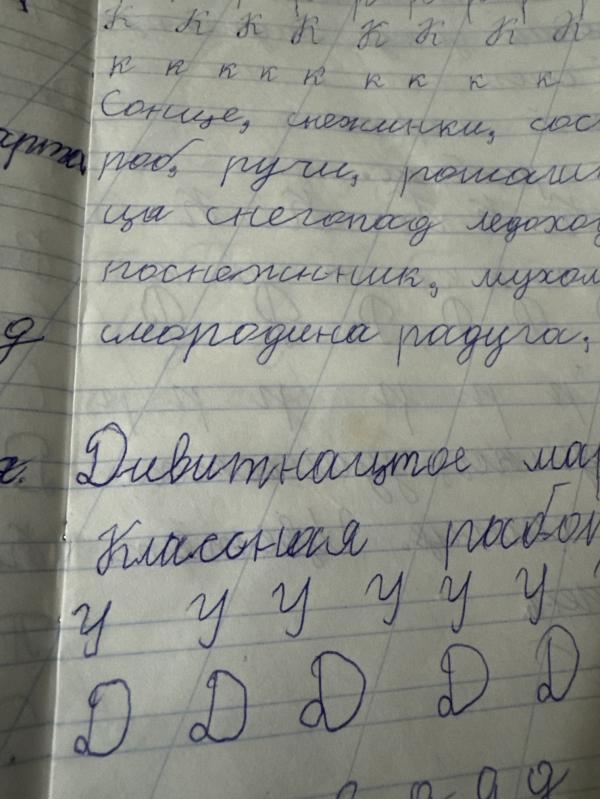 К К К К К К К К
к к к к к к к к к
Сонце, снежинки, сос
роб, ручи, ромаш
цы снегопад ледоход
поснежнник, мухом
смородина радуга,
Дивитнацтое мар
Классная работ
У У У У У У
Д Д Д Д Д